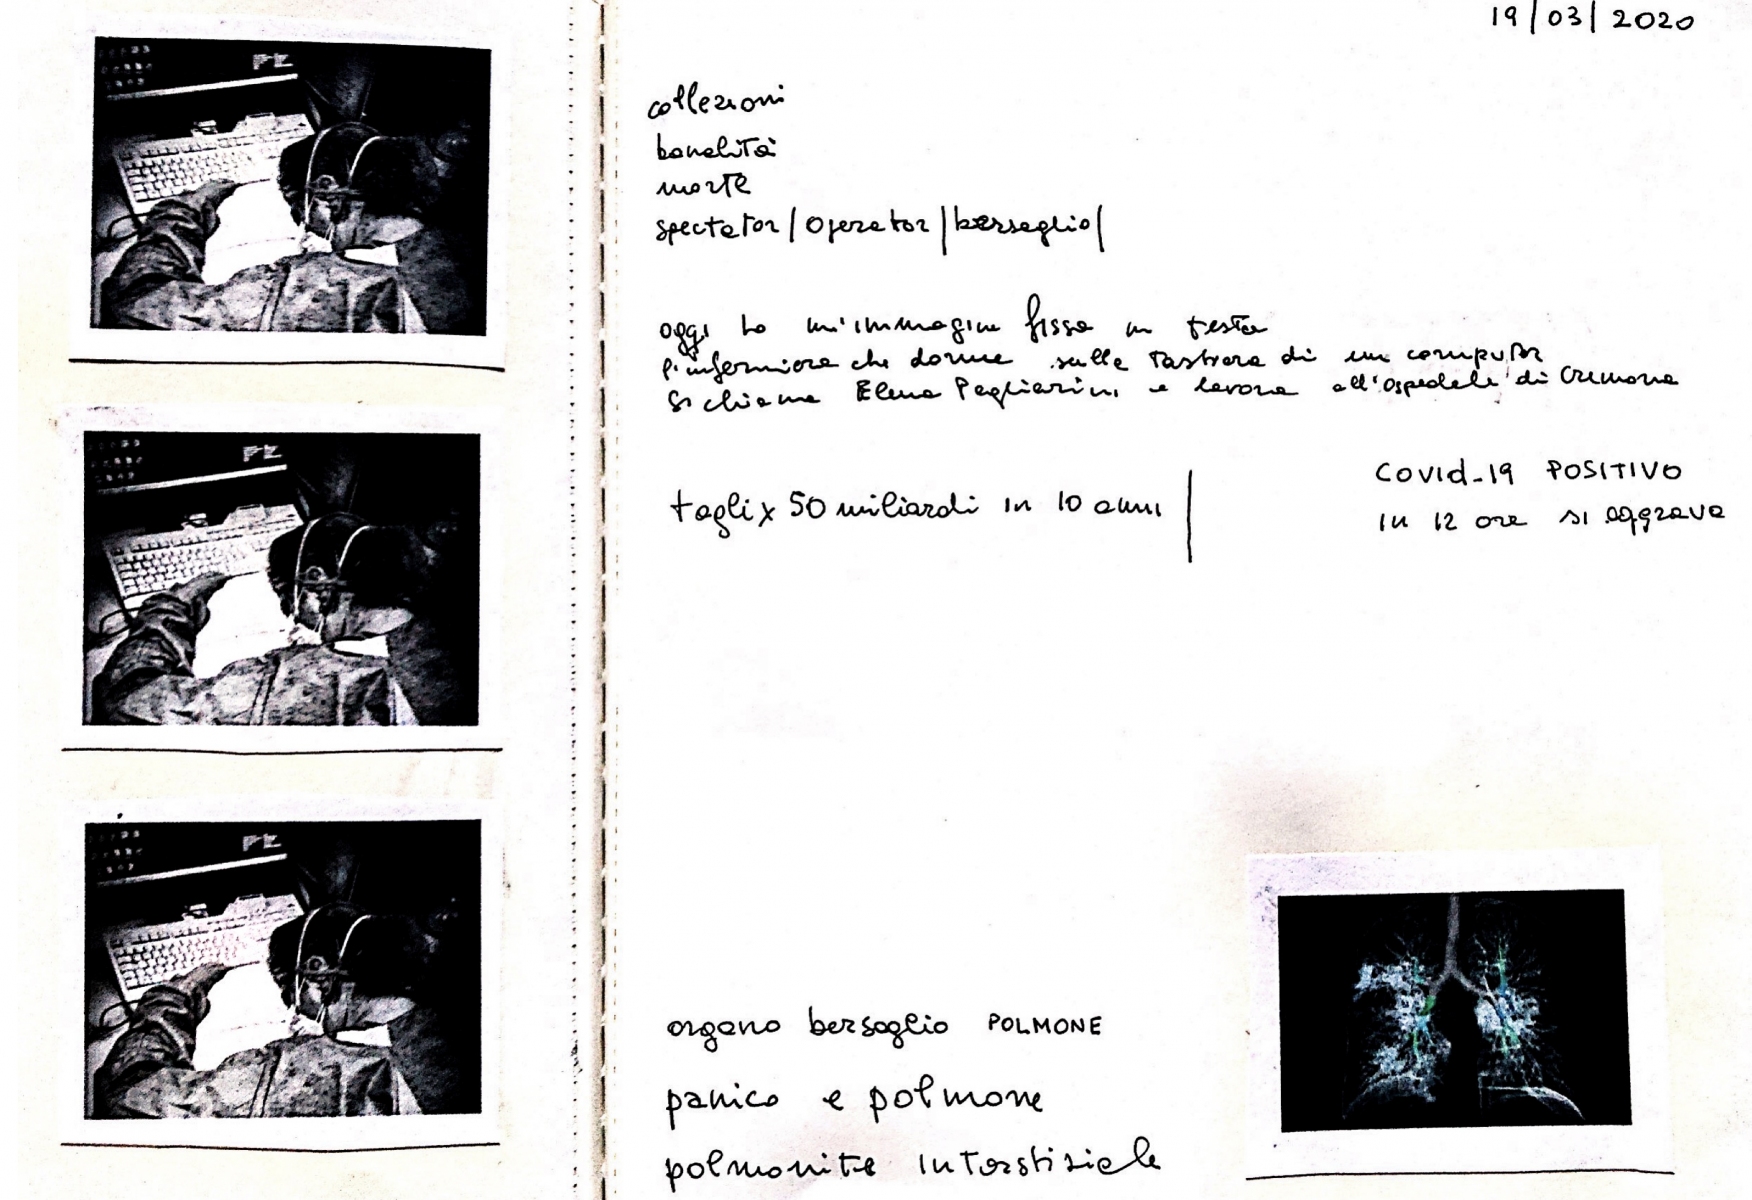 19/03/2020
collezioni
banalità
morte
spectator/operator/bersaglio/
oggi ho un'immagine fissa in testa
l'infermiera che dorme sulla tastiera di un computer
Si chiama Elena Pagliarini e lavora all'ospedale di Cremona
tagli x 50 miliardi in 10 anni |
Covid-19 POSITIVO
in 12 ore si aggrava
organo bersaglio POLMONE
panico e polmone
polmonite interstiziale